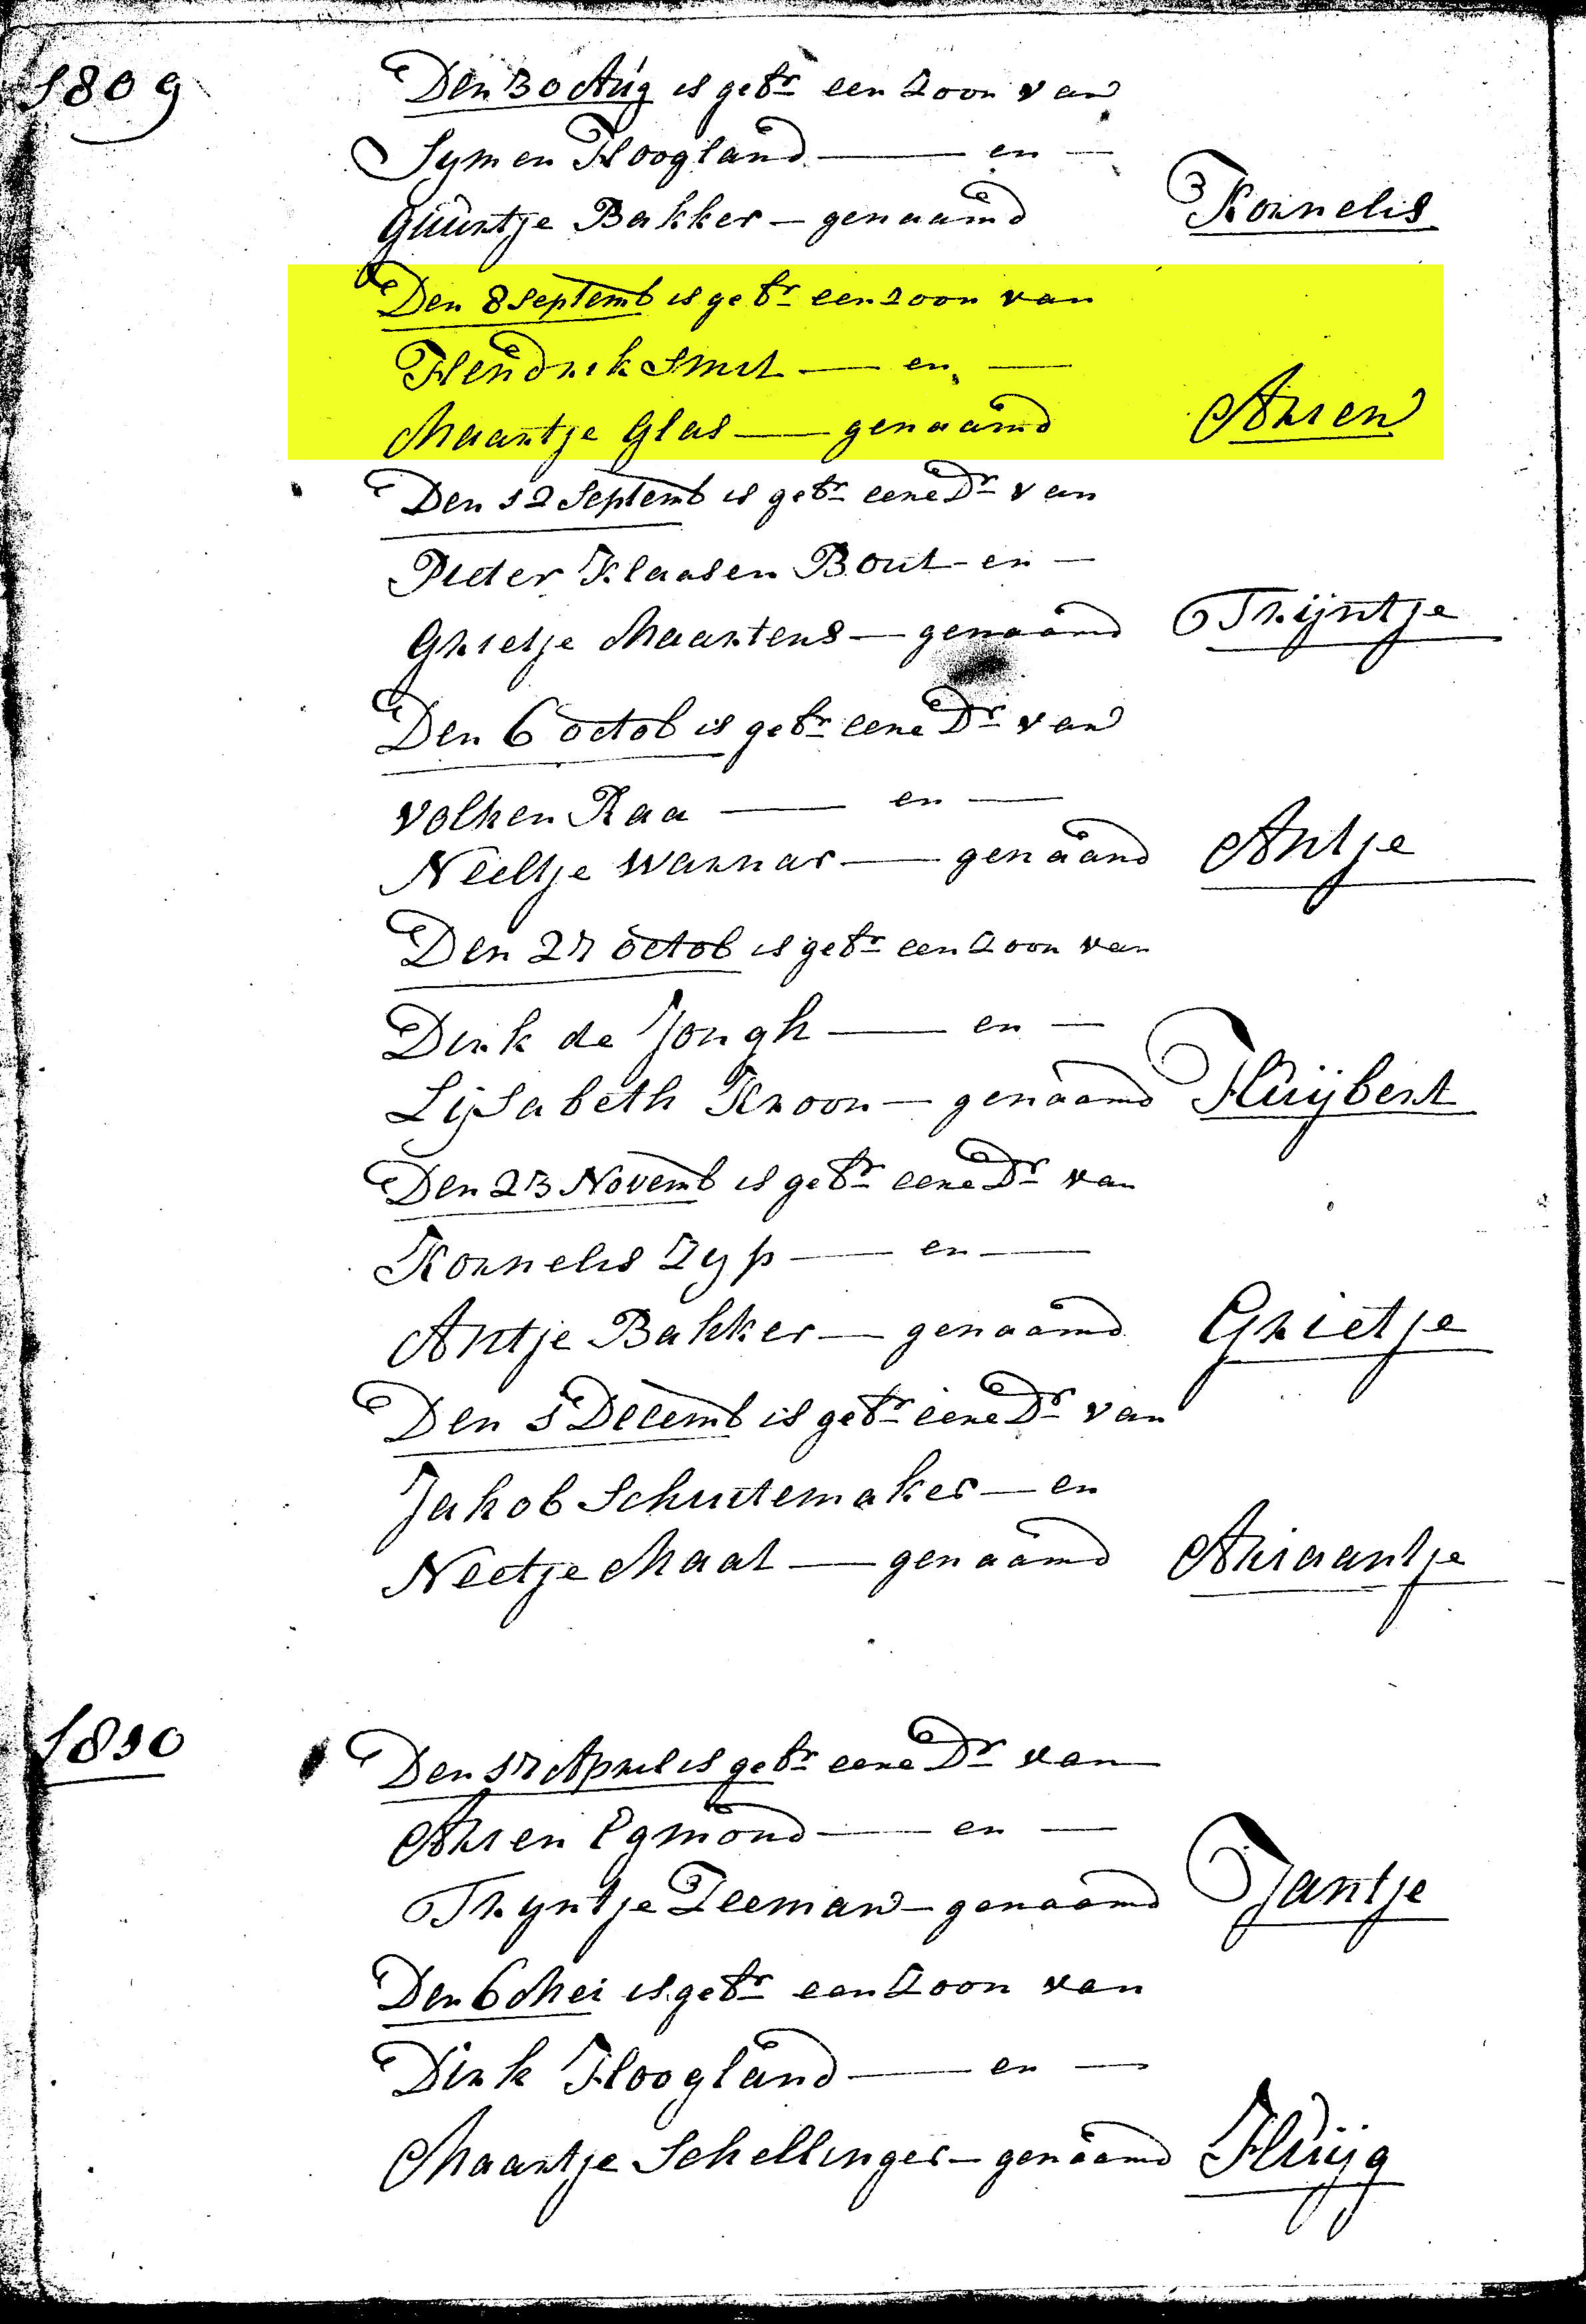 1809
Den 30 Aug is gebr een Zoon van
Symen Hoogland — en —
Guurtje Bakker — genaamd Kornelis
Den 8 Septemb is gebr een zoon van
Hendrik Smit — en —
Maartje Glas — genaamd Arien
Den 12 Septemb is gebr eene Dr van
Pieter Klaasen Bout — en —
Grietje Maartens — genaamd Trijntje
Den 6 octob is gebr eene Dr van
Volkert Raa — en —
Neeltje Warnar — genaamd Antje
Den 27 octob is gebr een Zoon van
Dirk de Jongh — en —
Lijsabeth Kroon — genaamd Huijbert
Den 23 Novemb is gebr eene Dr van
Kornelis Zyp — en —
Antje Bakker — genaamd Grietje
Den 1 Decemb is gebr eene Dr van
Jakob Schuitemaker — en
Neetje Maat — genaamd Ariaantje
1810
Den 17 April is gebr eene Dr van
Arien Egmond — en —
Tryntje Zeeman — genaamd Jantje
Den 6 Mei is gebr een Zoon van
Dirk Hoogland — en —
Maartje Schellinger — genaamd Huijg